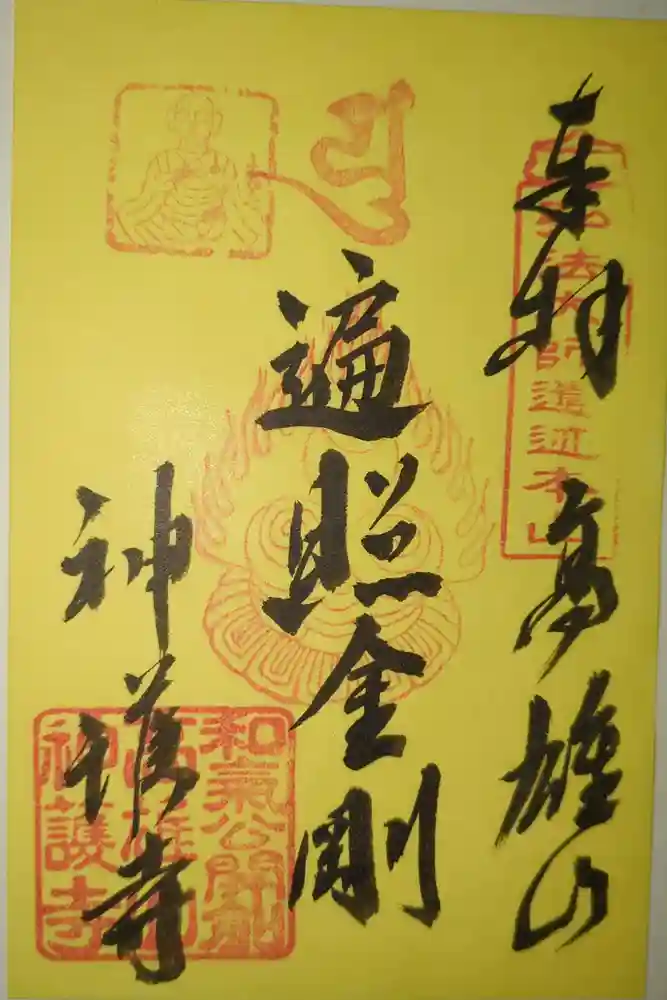 奉拝 高雄山
弘法大師遺迹本山
遍照金剛
神護寺
和氣公開創
高雄山
神護寺